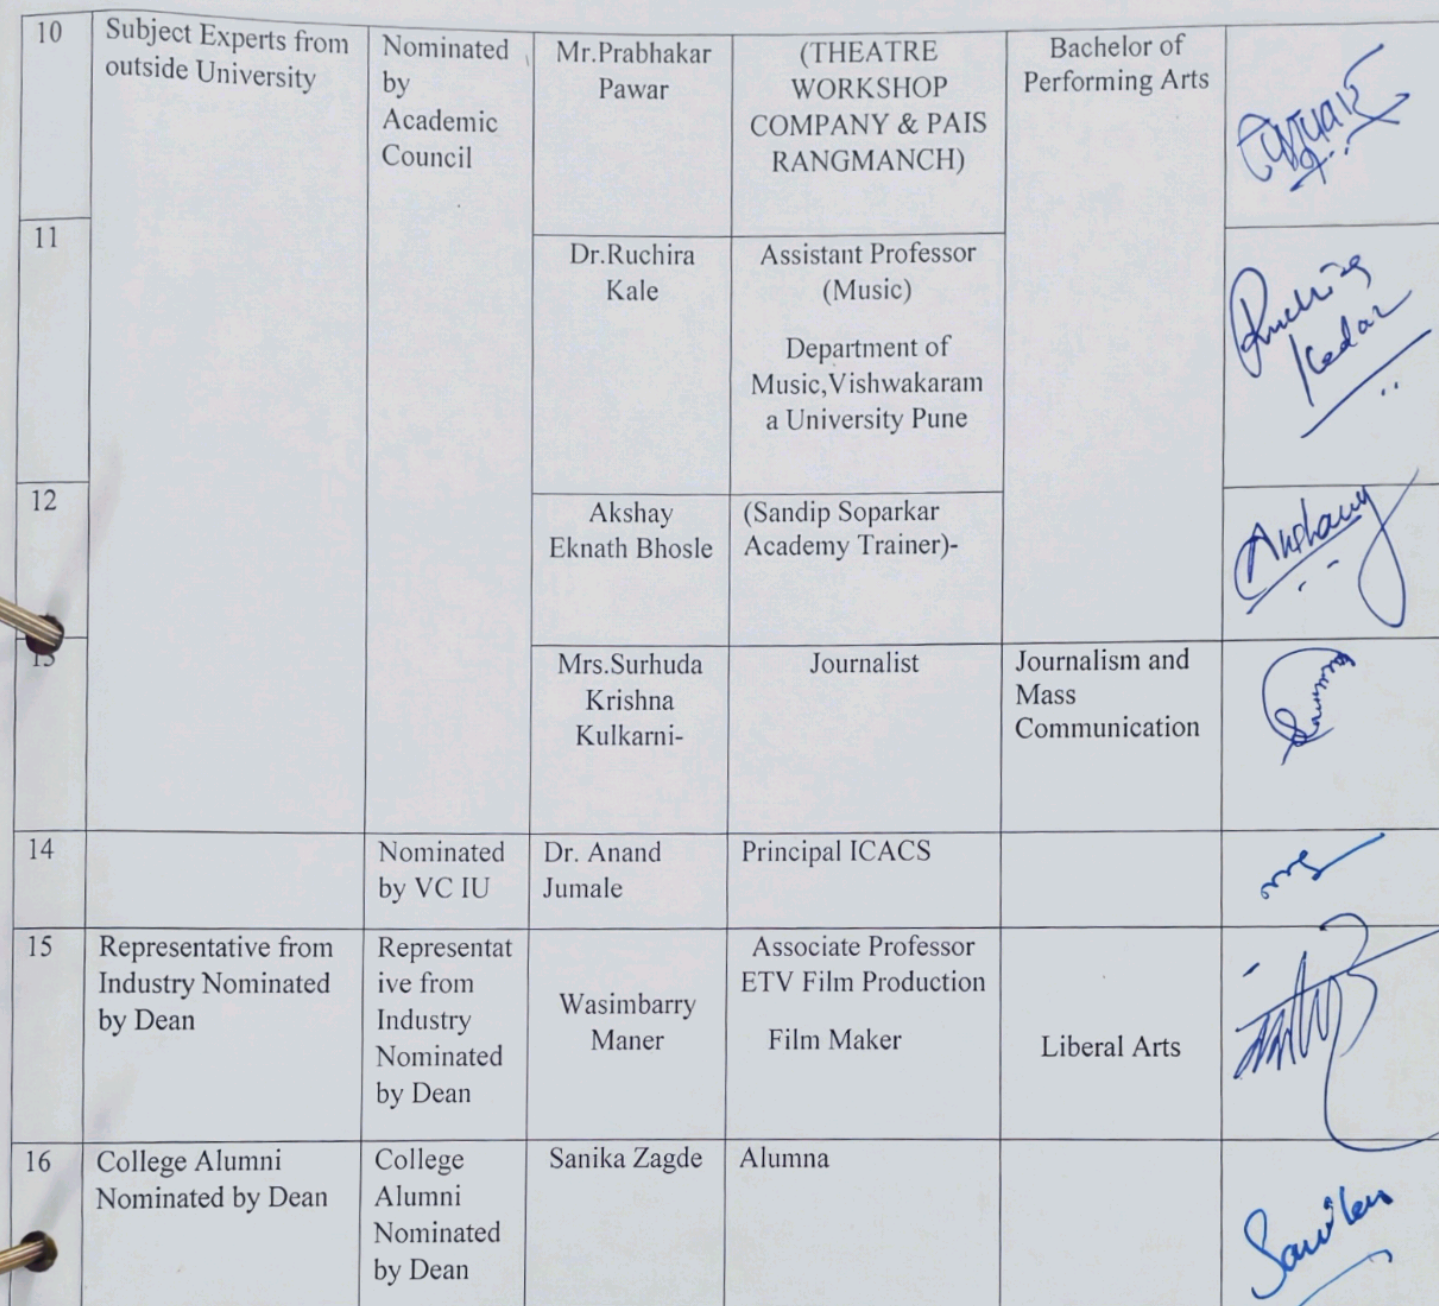 10
Subject Experts from
outside University
Nominated
by
Academic
Council
Mr.Prabhakar
Pawar
(THEATRE
WORKSHOP
COMPANY & PAIS
RANGMANCH)
Bachelor of
Performing Arts
11
Dr.Ruchira
Kale
Assistant Professor
(Music)
Department of
Music,Vishwakaram
a University Pune
Ruchira
Kedar
12
Akshay
Eknath Bhosle
(Sandip Soparkar
Academy Trainer)-
Akshay
13
Mrs.Surhuda
Krishna
Kulkarni-
Journalist
Journalism and
Mass
Communication
14
Nominated
by VC IU
Dr. Anand
Jumale
Principal ICACS
15
Representative from
Industry Nominated
by Dean
Representat
ive from
Industry
Nominated
by Dean
Wasimbarry
Maner
Associate Professor
ETV Film Production
Film Maker
Liberal Arts
16
College Alumni
Nominated by Dean
College
Alumni
Nominated
by Dean
Sanika Zagde
Alumna